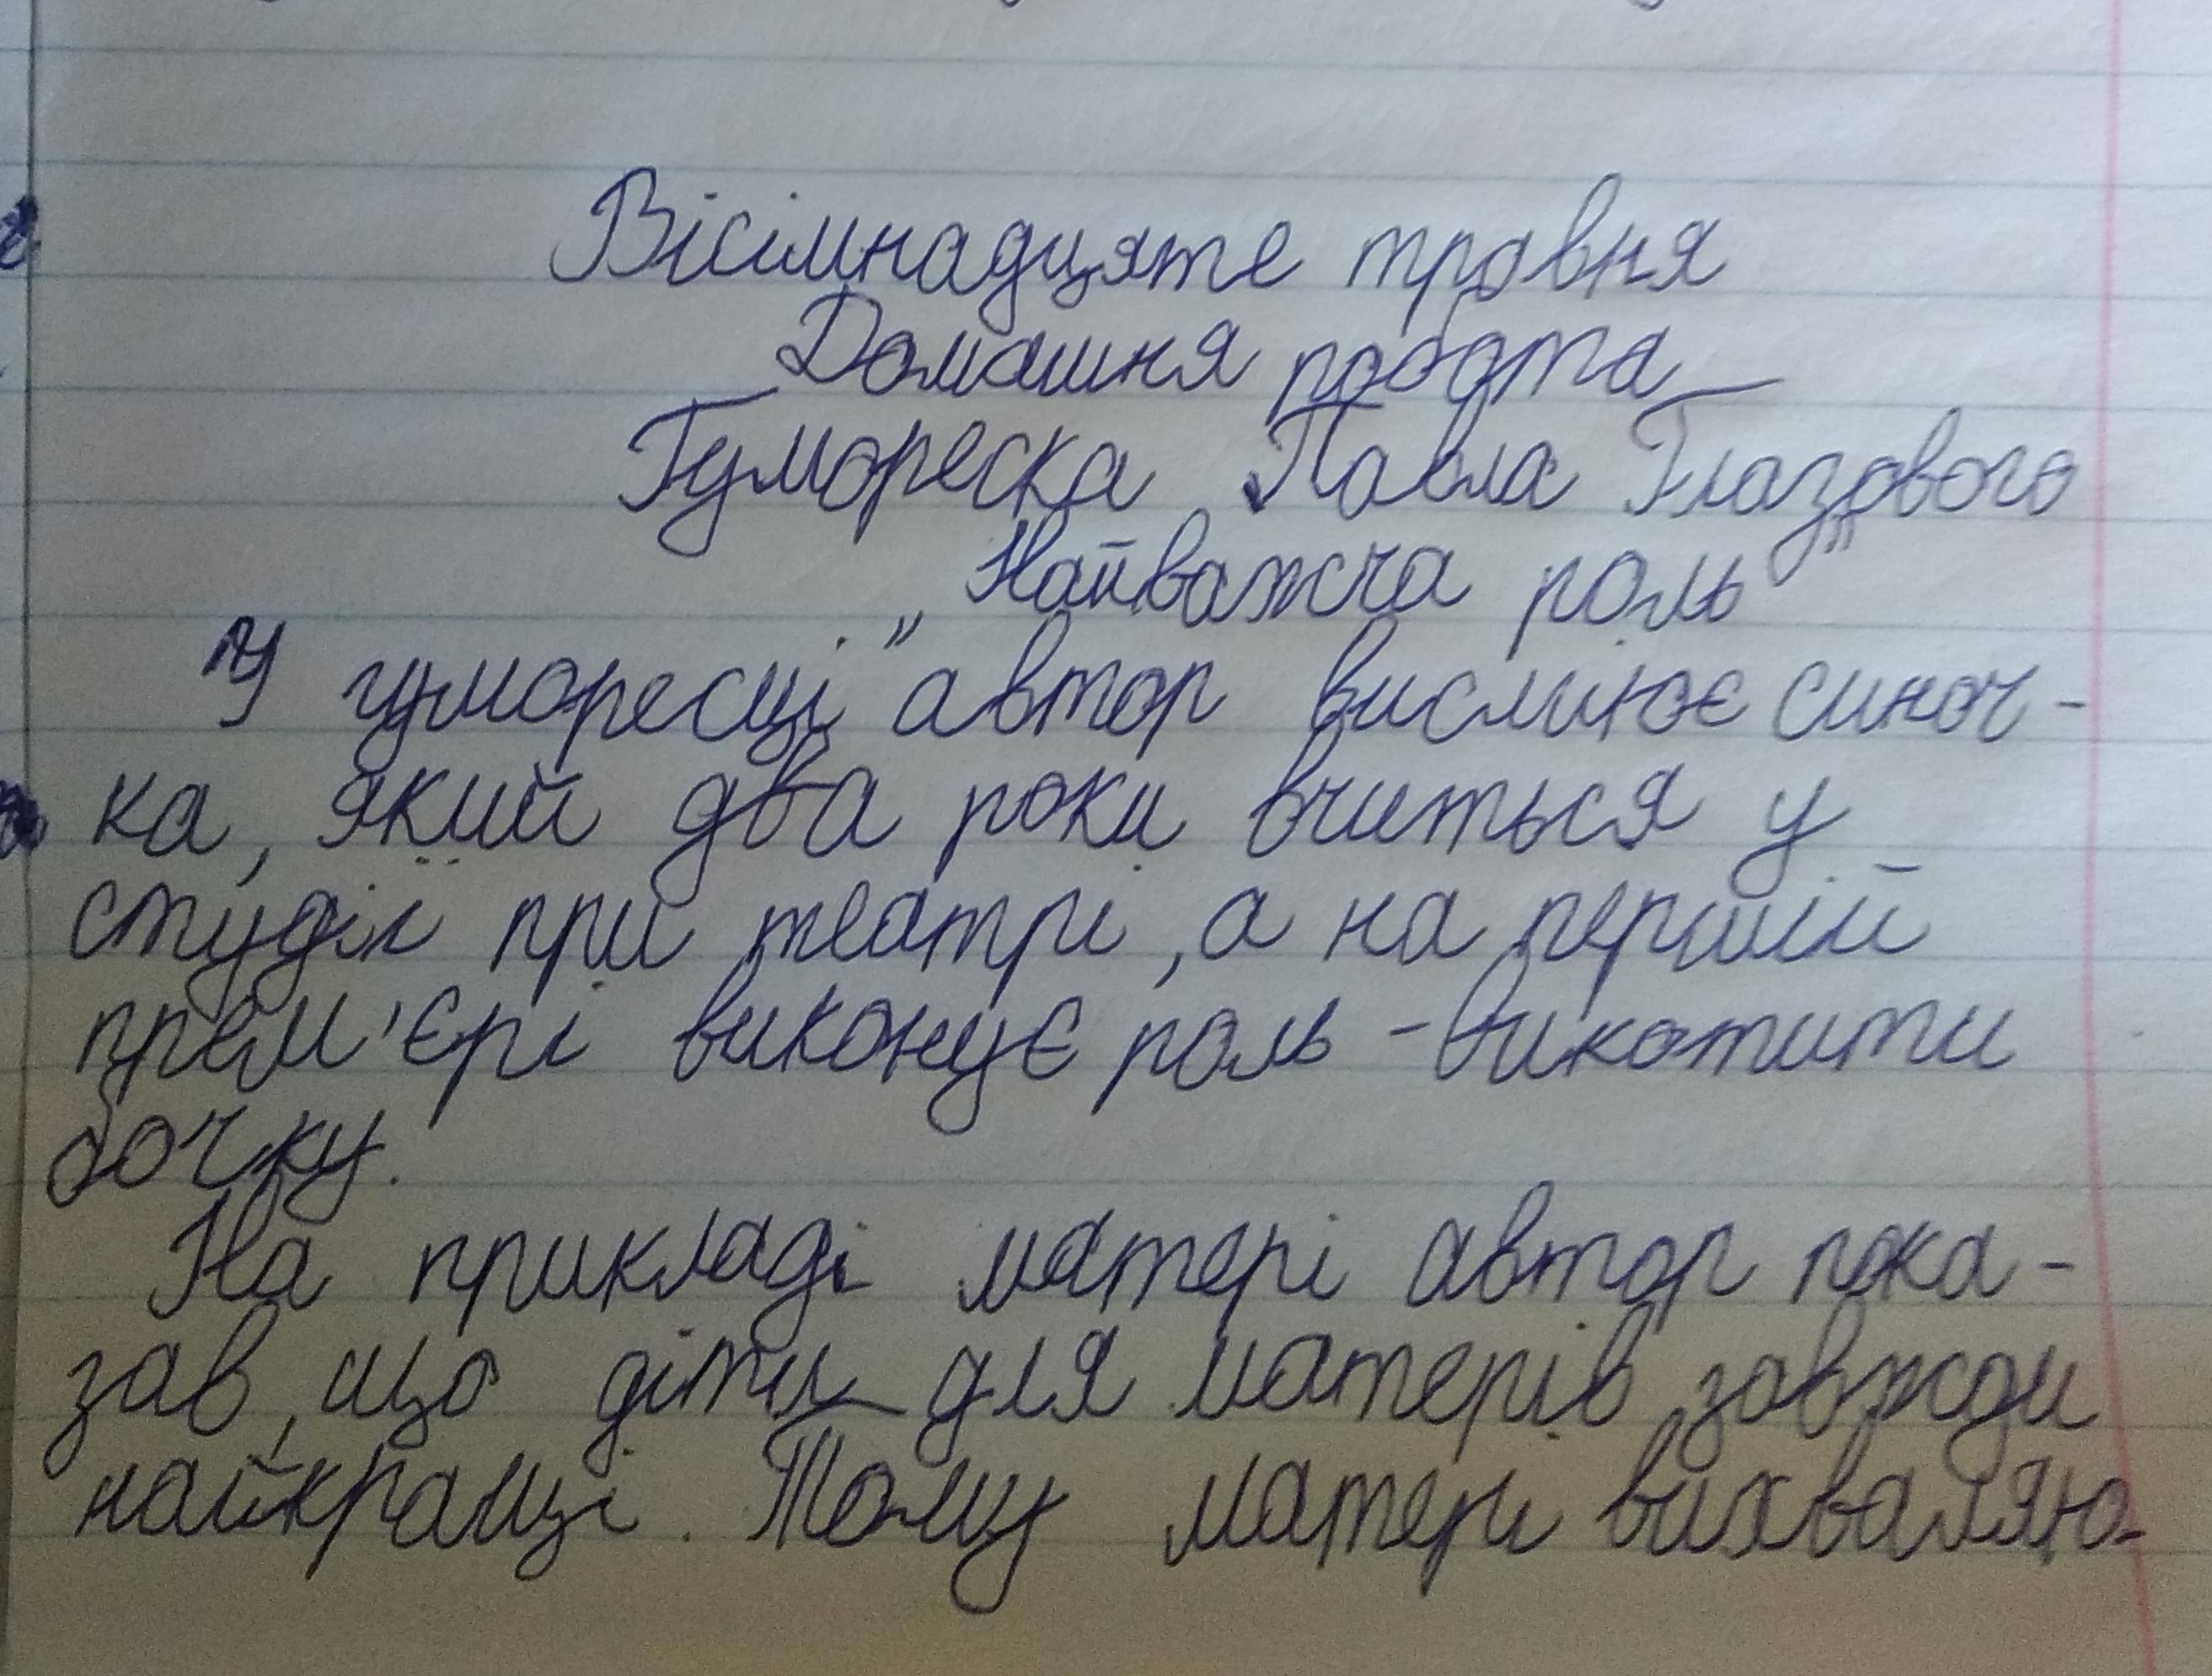 Вісімнадцяте травня
Домашня робота
Гумореска Павла Глазового
„Найважча роль"
У гуморесці автор висміює синоч-
ка, який два роки вчиться у
студії при театрі, а на першій
прем'єрі виконує роль - викотити
бочку.
На прикладі матері автор пока-
зав, що діти для матерів завжди
найкращі. Тому матері вихваляю-